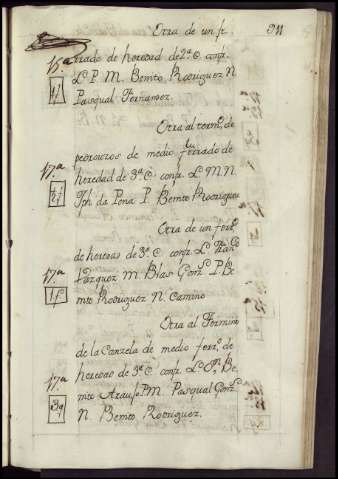 Otra de un fe
311
rrado de heredad de 2.a C conf.
L. P. M. Benito Rodriguez N.
Pasqual Fernandez.
Otra al term.o de
pedrouzos de medio ferrado de
17.a heredad de 3.a C conf. L. M. N.
Jph da Pena P. Benito Rodriguez
Otra de un ferr.o
de heredad de 3.a C conf. L. Fran.co
17.a Vazquez M. Blas Gonz.z P. Be
nito Rodriguez N. Camino
Otra al Termino
de la Canzela de medio ferr.o de
17.a heredad de 3.a C conf. L. Be
nito Araujo P. M. Pasqual Gonz.z
N. Benito Rodriguez.